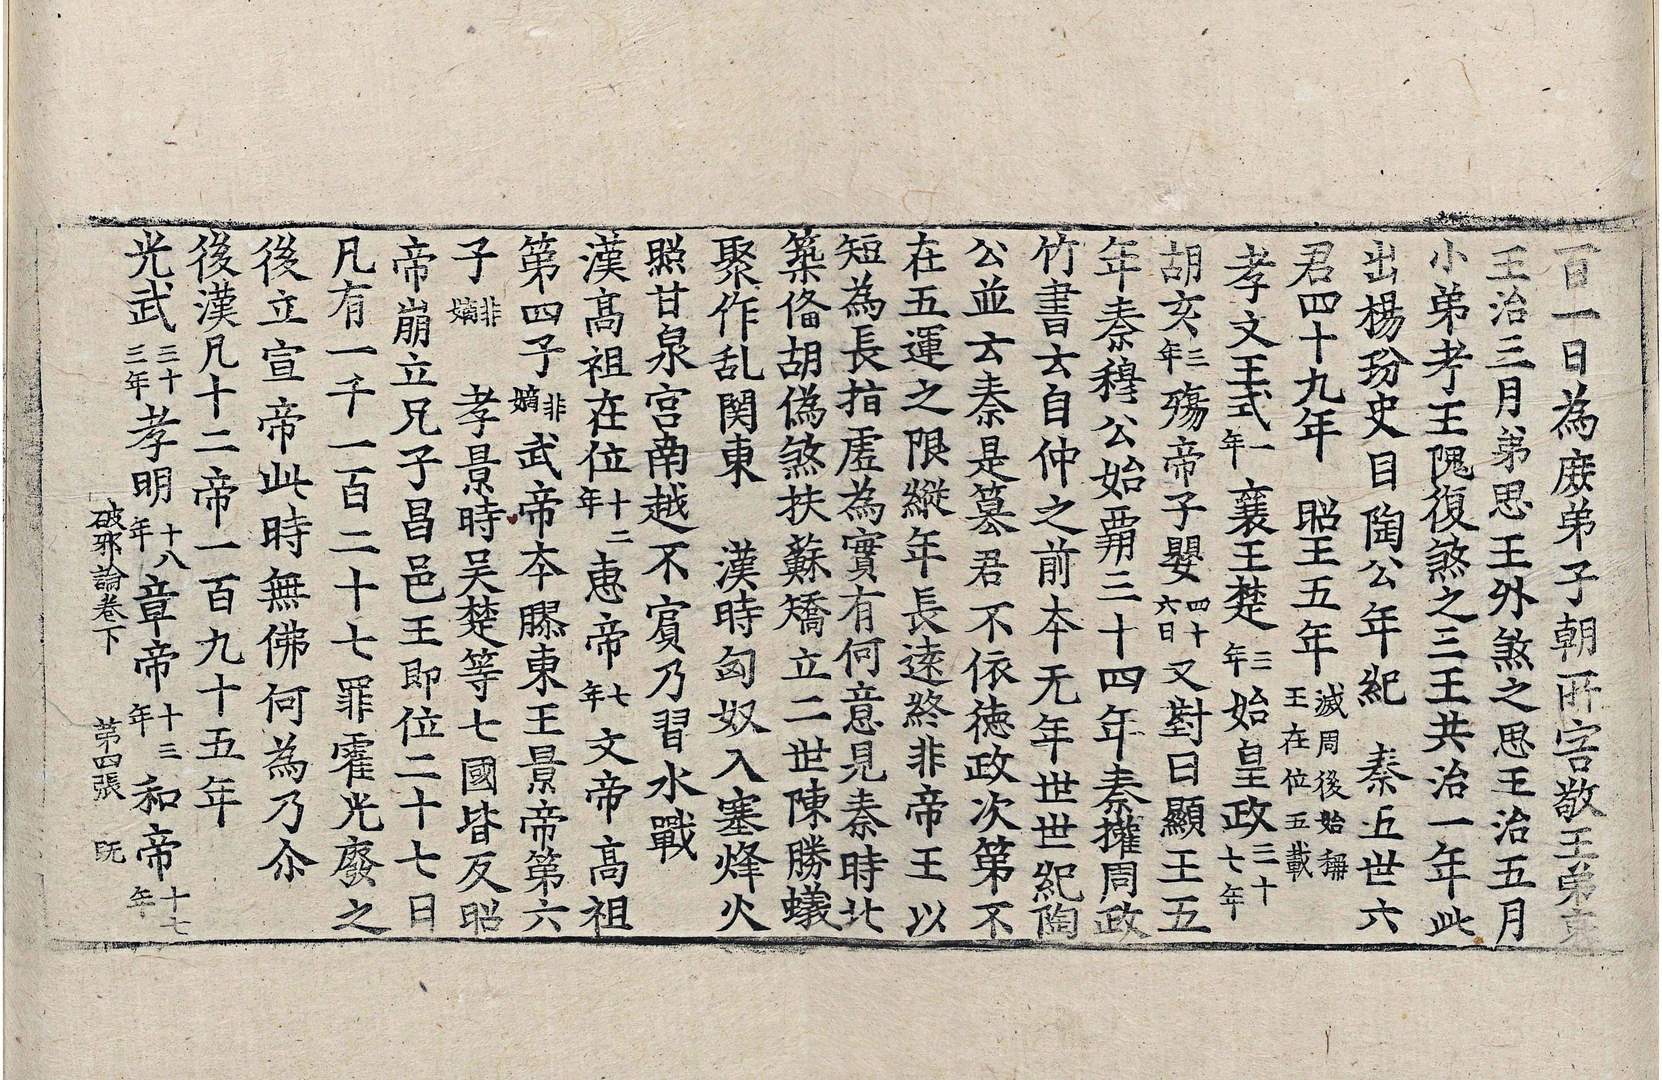 百一日為庶弟子朝所害敬王弟哀
王治三月弟思王外煞之思王治五月
小弟考王隗復煞之三王共治一年此
出楊玢史目陶公年紀　秦五世六
君四十九年　昭王五年滅周後始稱王在位五載
孝文王式一年　襄王楚三年始皇政三十七年
胡亥三年殤帝子嬰四十六日又對曰顯王五
年秦穆公始霸三十四年秦擁周政
竹書云自仲之前夲无年世世紀陶
公並云秦是篡君不依德政次第不
在五運之限縱年長遠終非帝王以
短為長指虛為實有何意見秦時北
築備胡偽煞扶蘇矯立二世陳勝蟻
聚作乱関東　漢時匈奴入塞烽火
照甘泉宮南越不賓乃習水戰
漢髙祖在位十二年惠帝七年文帝高祖
第四子非嫡武帝夲膠東王景帝第六
子非嫡　孝景時吴楚等七國皆反昭
帝崩立兄子昌邑王即位二十七日
凡有一千一百二十七罪霍光廢之
後立宣帝此時無佛何為乃尒
後漢凡十二帝一百九十五年
光武三十三年孝明十八年章帝十三年和帝十七年
破邪論卷下　第四張　既